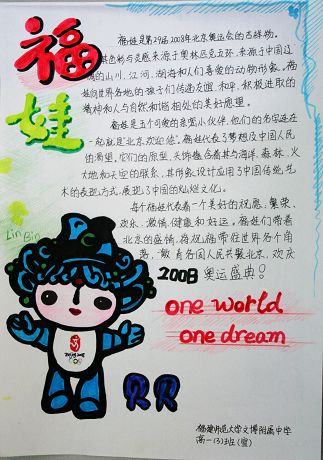 福娃
福娃是第29届2008年北京奥运会的吉祥物。
其色彩与灵感来源于奥林匹克五环、来源于中国辽
阔的山川、江河、湖海和人们喜爱的动物形象。福
娃向世界各地的孩子们传递友谊、和平、积极进取的
精神和人与自然和谐相处的美好愿望。
福娃是五个可爱的亲密小伙伴,他们的名字连在
一起就是"北京欢迎你"。福娃代表了梦想及中国人民
的渴望。它们的原型、头饰蕴含着其与海洋、森林、火
大地和天空的联系,其形象设计应用了中国传统艺
术的表现方式,展现了中国的灿烂文化。
每个福娃代表着一个美好的祝愿:繁荣、
欢乐、激情、健康和好运。福娃们带着
北京的盛情,将祝福带往世界各个角
落,邀请各国人民共聚北京,欢庆
2008 奥运盛典!
Lin Bin
one world
one dream
贝贝
福建师范大学文博附属中学
高一(3)班(宣)